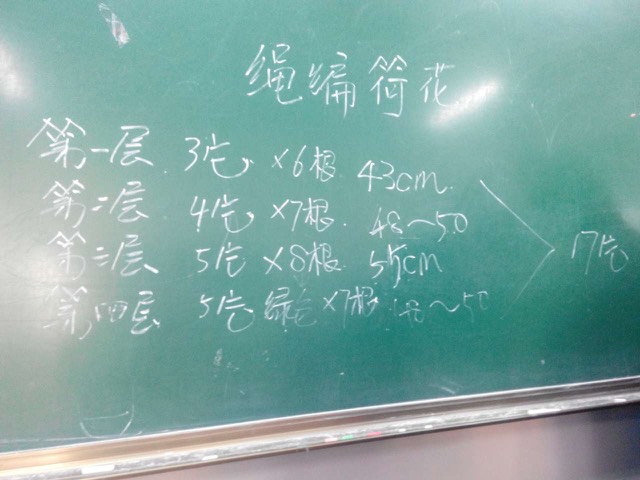 绳编荷花
第一层 3片 ×6根 43cm
第二层 4片 ×7根 48～50
第三层 5片 ×8根 55cm
第四层 5片 绿色 ×7根 48～50
17片